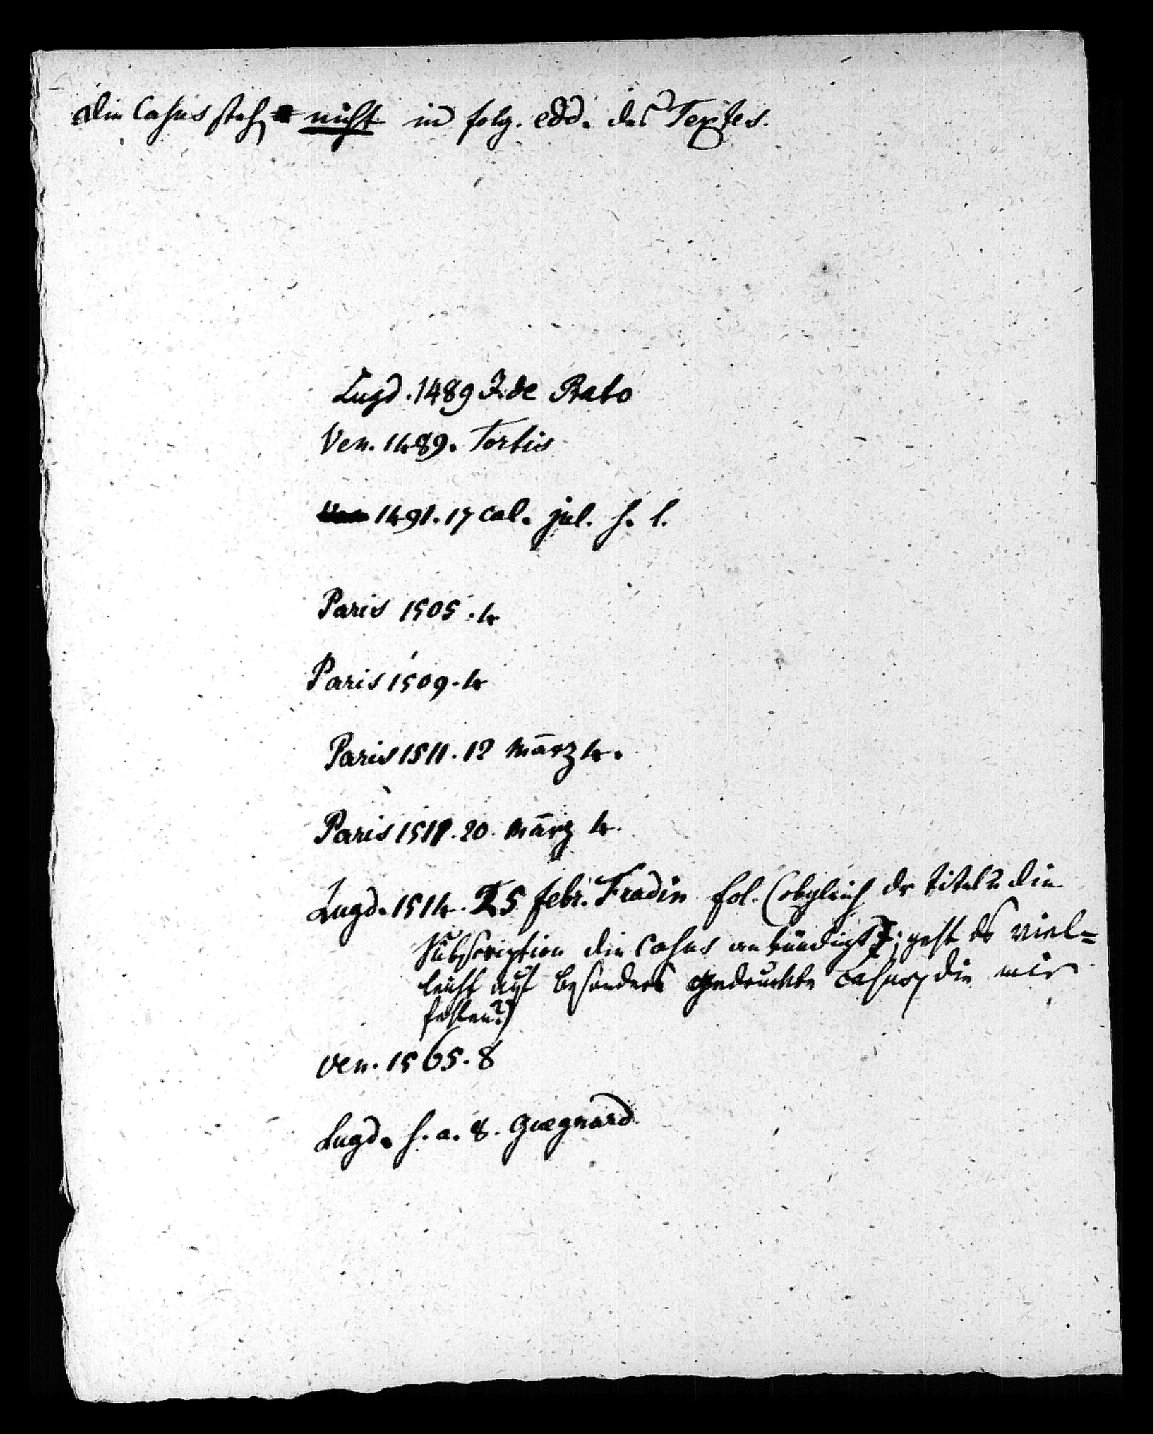 Die Casus steh nicht in folg. edd. des Textes.
Lugd. 1489 J. de Prato
Ven. 1489. Tortis
1491. 17 cal. jul. s. l.
Paris 1505. 4
Paris 1509. 4
Paris 1511. 12 März 4.
Paris 1511. 20. März 4.
Lugd. 1514. 25 febr. Fradin fol. (obgleich der titel u. die
Subscription die Casus ankündigt; geht das viel=
leicht auf besonders gedruckte Casus, die mir
fehlen?)
Ven. 1565. 8
Lugd. s. a. 8. Guegnard